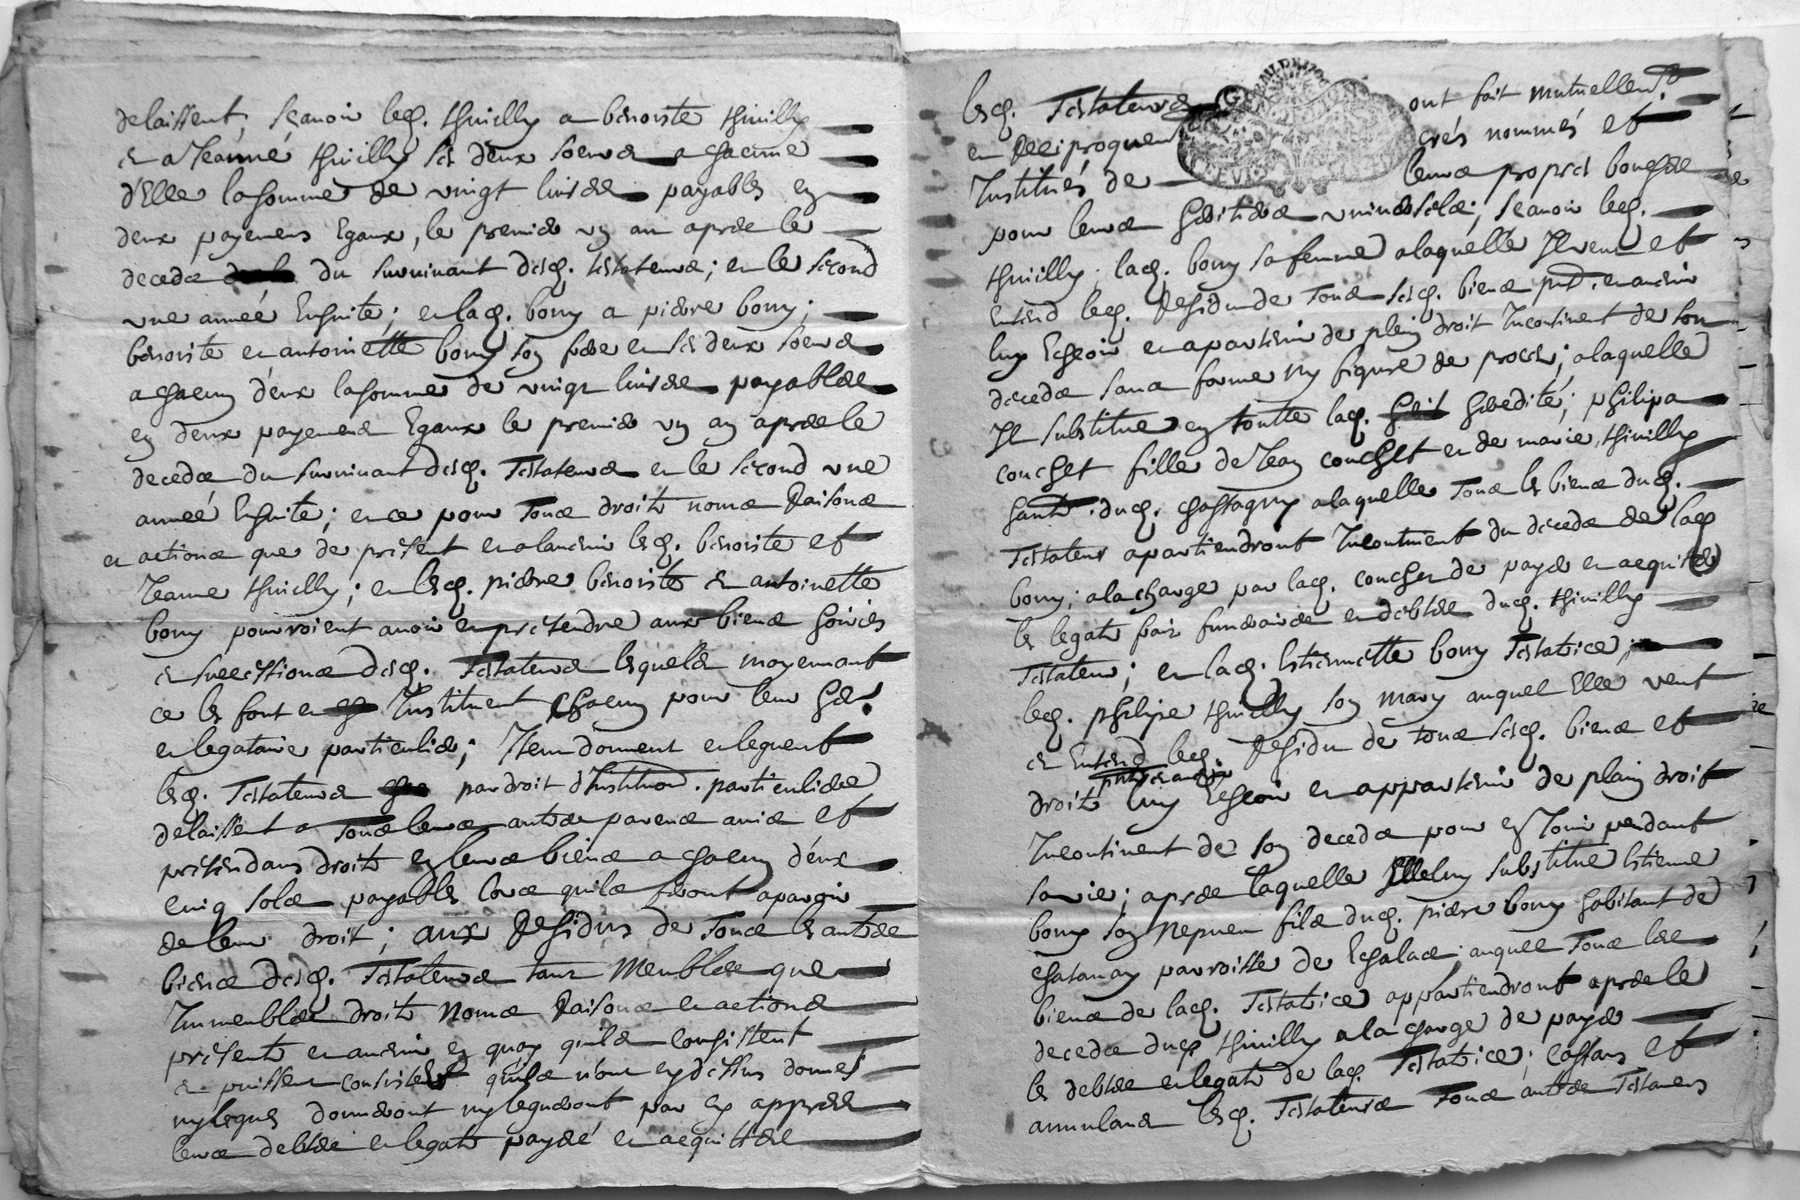 delaissent, sçavoir led. thuilly a benoiste thuilly
et a Jeanne thuilly ses deux soeurs a chacune
d'Elle la somme de vingt livres payables en
deux payemens Egaux, le premier un an apres le
deceds du survivant desd. testateurs; et le second
une année Ensuite; et lad. bony a pierre bony;
benoiste et antoinette bony son frere et ses deux soeurs
a chacun d'eux la somme de vingt livres payables
en deux payemens Egaux le premier un an apres le
deceds du survivant desd. Testateurs et le second une
année Ensuite; et ce pour Tous droits noms Raisons
et actions que de présent et a l'avenir lesd. benoiste et
Jeanne thuilly; et lesd. pierre benoiste et antoinette
bony pourroient avoir et prétendre aux biens hoiries
et successions desd. Testateurs lesquels moyennant
ce les font et Instituent Chacun pour leur her.
et legataire particulier; Item donnent et leguent
lesd. Testateurs par droit d'Institution. particuliere
delaissent a Tous leurs autres parens amis et
prétendans droits en leurs biens a chacun d'eux
cinq sols payables lors qu'ils feront aparoir
de leur droit; aux Residus de Tous les autres
biens desd. Testateurs tant Meubles que
Immeubles droits Noms Raisons et actions
présents et avenir en quoy qu'ils consistent
et puissent consister qu'ils n'ont cy dessus donnés
ny legués donneront ny legueront par cy appres
leurs debtes et legats payés et acquittés
lesd. Testateurs ont fait mutuellem.t
et Reciproquem crés nommés et
Institués de leurs propres bouches
pour leurs heritiers universels; sçavoir led.
thuilly; lad. bony sa femme a laquelle Il veut et
Entend led. Residu de Tous sesd. biens et avenir
luy Echoir et apartenir de plein droit Incontinent de son
deceds sans forme ny figure de proces; a laquelle
Il substitue en toutte lad. heredité; philipa
couchet fille de Jean couchet et de marie thuilly
dud. chassagny a laquelle Tous les biens dud.
Testateur apartiendront Incontinent du deceds de lad.
bony; a la charge par lad. couchet de payer et acquitter
les legats frais funeraires et debtes dud. thuilly
Testateur; et lad. Estiennette bony Testatrice;
led. philipe thuilly son mary auquel Elle veut
et Entend led. Residu de tous sesd. biens et
droits luy Echoir et appartenir de plain droit
Incontinent de son deceds pour en Jouir pendant
sa vie; apres laquelle Elle luy substitue Estienne
bony son Nepveu fils dud. pierre bony habitant de
chatanay parroisse de Echalas; auquel Tous les
biens de lad. Testatrice appartiendront apres le
deceds dud. thuilly a la charge de payer
les debtes et legats de lad. Testatrice; cassans et
annulans lesd. Testateurs Tous autres Testamens